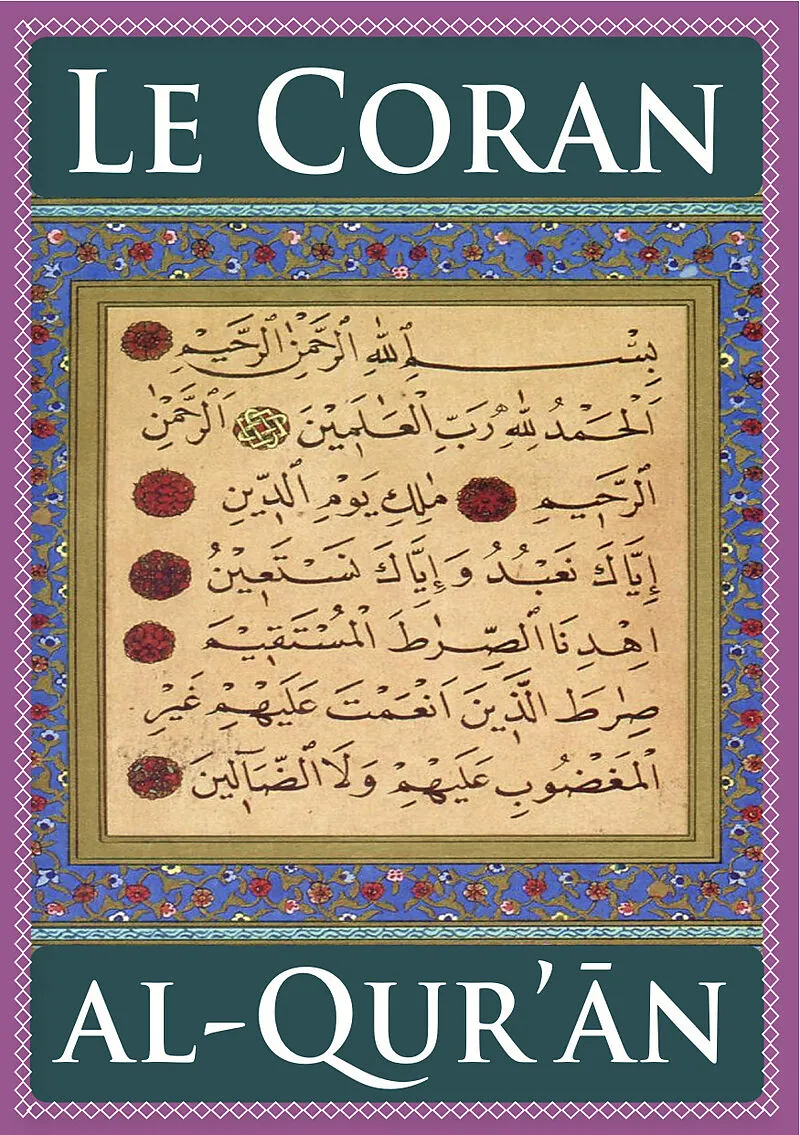 LE CORAN
بِسْمِ ٱللهِ ٱلرَّحْمٰنِ ٱلرَّحِيمِ
اَلْحَمْدُ لِلهِ رَبِّ الْعَالَمِينَ اَلرَّحْمٰنِ
ٱلرَّحِيمِ مٰلِكِ يَوْمِ ٱلدِّينِ
إِيَّاكَ نَعْبُدُ وَإِيَّاكَ نَسْتَعِينُ
اِهْدِنَا ٱلصِّرَاطَ الْمُسْتَقِيمَ
صِرَاطَ الَّذِينَ اَنْعَمْتَ عَلَيْهِمْ غَيْرِ
الْمَغْضُوبِ عَلَيْهِمْ وَلَا ٱلضَّآلِّينَ
AL-QUR’ĀN